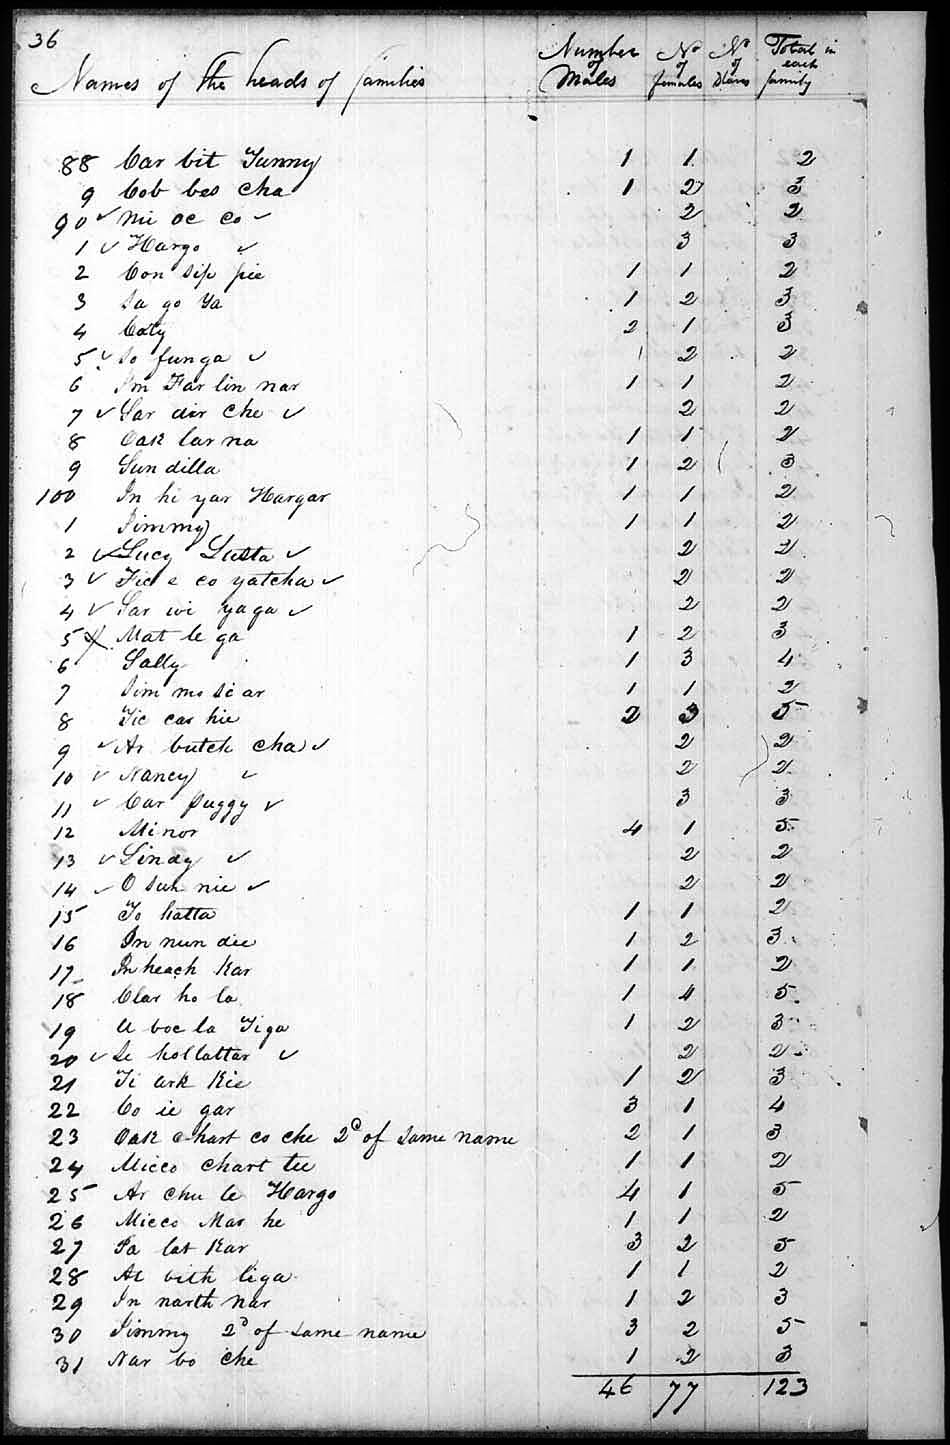 36
Names of the heads of families Number of Males No of females No of Slaves Total in each family
88 Car bit Tunny 1 1 2
9 Cob bes cha 1 2 3
90 ✓ Nic oc co ✓ 2 2
1 ✓ Hargo ✓ 3 3
2 Con sip pie 1 1 2
3 Sa go Ya 1 2 3
4 Caty 2 1 3
5 ✓ So funga ✓ 2 2
6 Im Far lin nar 1 1 2
7 ✓ Sar dir che ✓ 2 2
8 Oak lar na 1 1 2
9 Sun dilla 1 2 3
100 In hi yar Hargar 1 1 2
1 Jimmy 1 1 2
2 ✓ Lucy Lusta ✓ 2 2
3 ✓ Fic e co yatcha ✓ 2 2
4 ✓ Sar wi yaga ✓ 2 2
5 Mat le ga 1 2 3
6 Sally 1 3 4
7 Sim mo si ar 1 1 2
8 Tic cas hie 2 3 5
9 ✓ Ar butch cha ✓ 2 2
10 ✓ Nancy ✓ 2 2
11 ✓ Car Puggy ✓ 3 3
12 Minor 4 1 5
13 ✓ Lindy ✓ 2 2
14 ✓ O suh nie ✓ 2 2
15 To hatta 1 1 2
16 In nun die 1 2 3
17 In heach Kar 1 1 2
18 Clar ho la 1 4 5
19 A boc la Tiga 1 2 3
20 ✓ Se hollattar ✓ 2 2
21 Ti ark Kie 1 2 3
22 Co ie gar 3 1 4
23 Oak chart co che 2d of same name 2 1 3
24 Micco chart tee 1 1 2
25 Ar chu le Hargo 4 1 5
26 Micco Mar he 1 1 2
27 Pa lat Kar 3 2 5
28 At bith liga 1 1 2
29 In narth nar 1 2 3
30 Jimmy 2d of same name 3 2 5
31 Nar bo che 1 2 3
46 77 123